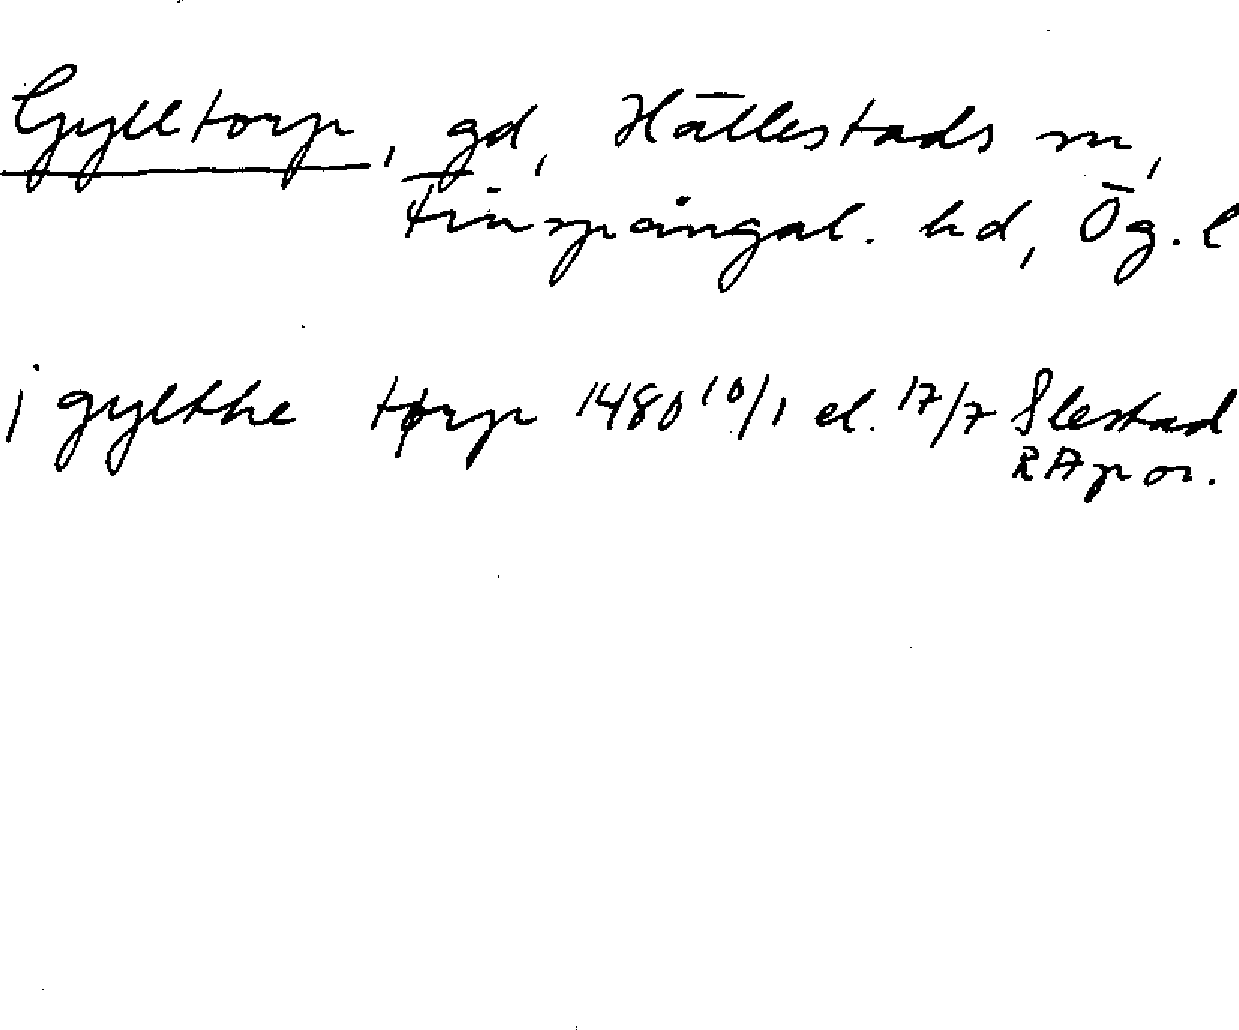 Gylltorp, gd, Hällestads sn,
Finspångal. hd, Ög. l
i gylthe tørp 1480 10/1 el. 17/7 Slestad
RA por.